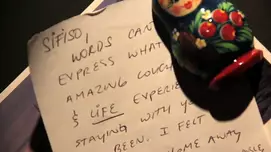 SIFISO,
WORDS CAN
EXPRESS WHAT
AMAZING COUCH
& LIFE EXPERIE
STAYING WITH Y
BEEN. I FELT
OME AWAY